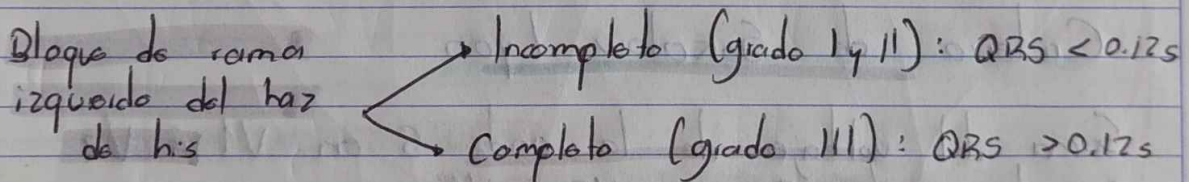 Bloqueo de rama
izquierda del haz
de his
Incompleto (grado I y II): QRS <0.12s
Completo (grado III): QRS >0.12s